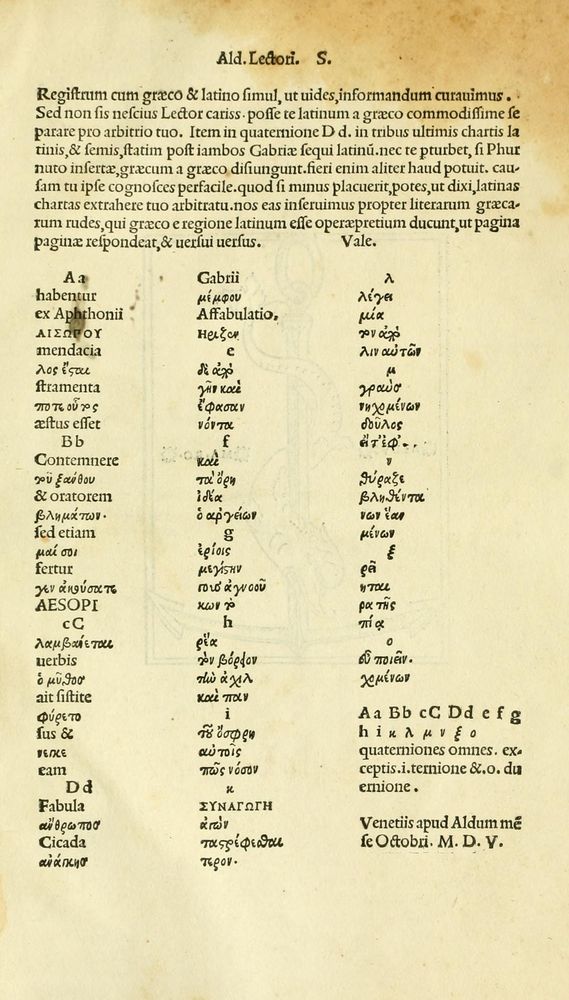 Ald. Lectori. S.
Registrum cum græco & latino simul, ut uides, informandum curauimus.
Sed non sis nescius Lector cariss. posse te latinum a græco commodissime se
parare pro arbitrio tuo. Item in quaternione D d. in tribus ultimis chartis la
tinis, & semis, statim post iambos Gabriæ sequi latinū. nec te pturbet, si Phur
nuto insertæ, græcum a græco disiungunt. fieri enim aliter haud potuit. cau-
sam tu ipse cognosces perfacile. quod si minus placuerit, potes, ut dixi, latinas
chartas extrahere tuo arbitratu. nos eas inseruimus propter literarum græca-
rum rudes, qui græco e regione latinum esse operæpretium ducunt, ut pagina
paginæ respondeat, & uersui uersus. Vale.
A a
habentur
ex Aphthonii
ΑΙΣΩΠΟΥ
mendacia
λος ἔσται
stramenta
ποτε οὗτος
æstus esset
B b
Contemnere
τοῦ ξανθου
& oratorem
βλημάτων.
sed etiam
μαί σοι
fertur
AESOPI
c C
λαμβάνεται
uerbis
ὁ μῦθος
ait sistite
φύρετο
sus &
eam
D d
Fabula
ἄνθρωπος
Cicada
Gabrii
μέμφου
Affabulatio.
Ηριζον
e
δὲ ἀλώ
γῆν καὶ
ἔφασαν
νόντα
f
καὶ
τὰ ὄρη
ἰδέα
ὁ ἀργείων
g
ἐρίοις
μεγίστην
που ἀγνοοῦ
κων τὸ
h
ῥέα
τὸν βόρβον
τῷ ἀχιλ
καὶ παν
i
τοῦ ὀσφρη
αὐτοῖς
πῶς νόσον
κ
ΣΥΝΑΓΩΓΗ
τερον.
λ
λέγει
μία
λιν αὐτῶν
μ
γραὺς
νηχομένων
δοῦλος
ν
θύραζε
βληθέντα
νων ἐὰν
μένων
ξ
ρεῖ
ηται
ρα τῆς
πία
ο
οὐ ποιεῖν.
χομένων
A a B b c C D d e f g
h i κ λ μ ν ξ ο
quaterniones omnes. ex-
ceptis. i. ternione &. o. du
ernione.
Venetiis apud Aldum mē
se Octobri. M. D. V.